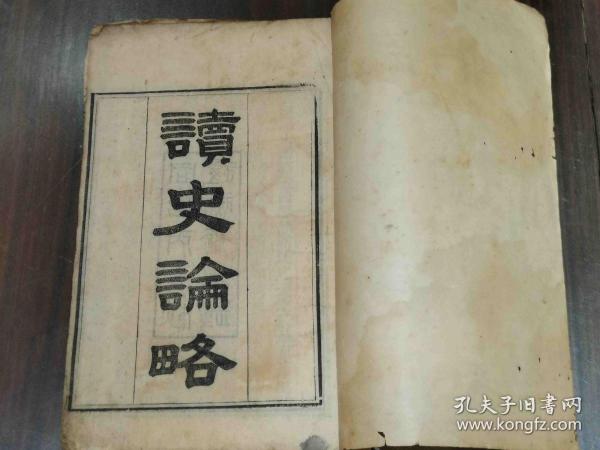 讀史論略
孔夫子旧书网
www.kongfz.com